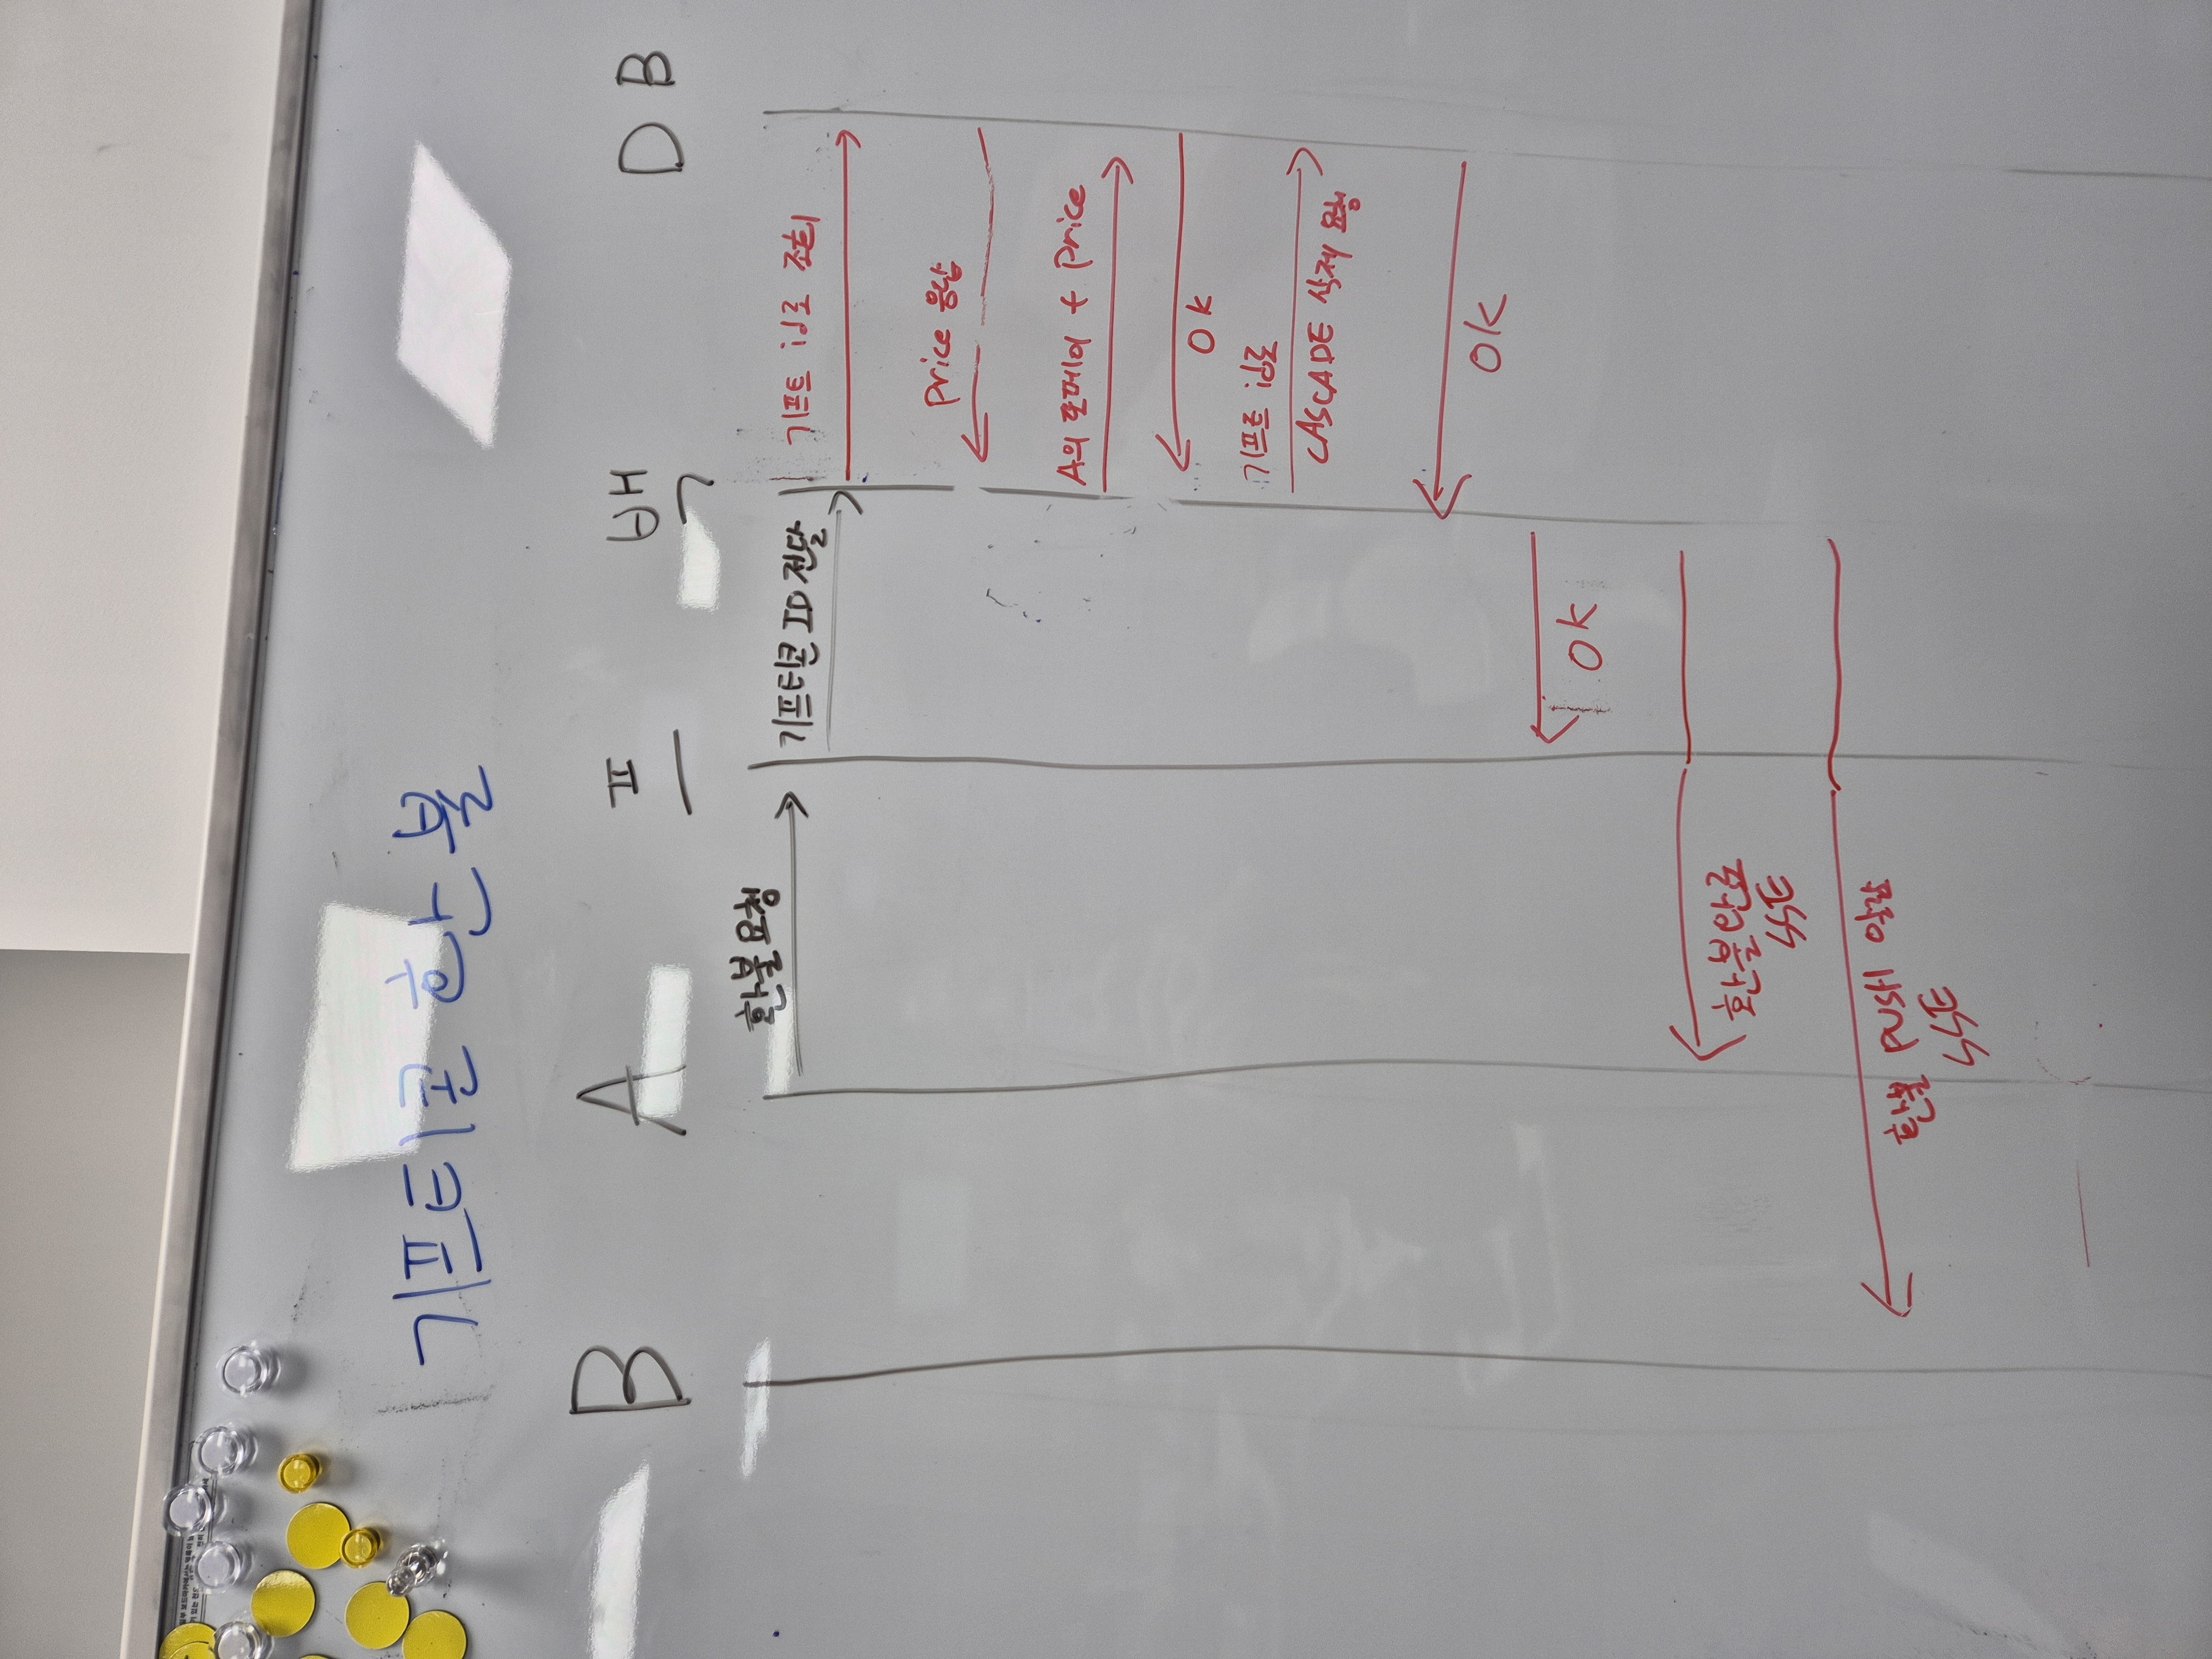 기프티콘 환불
B A 프 백 DB
환불 요청
기프티콘 ID 전달
기프트 id로 조회
price 응답
A의 포페이 + price
OK
기프트 id로
CASCADE 삭제 요청
OK
OK
환불완료
SSE
환불 PUSH 알람
SSE